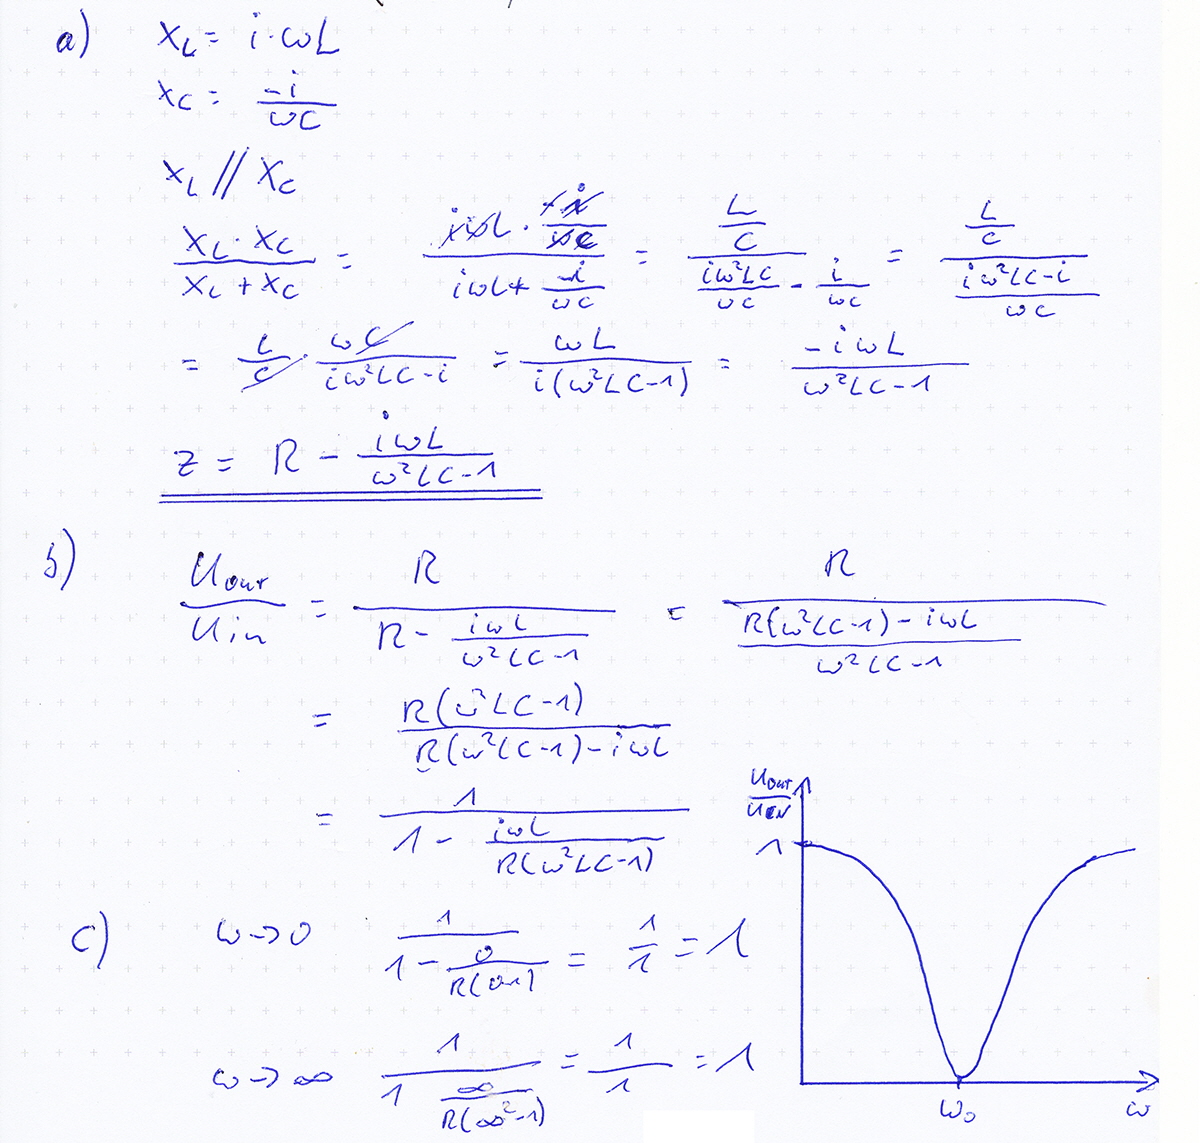 a) X_L = i·ωL
X_C = -i/(ωC)
X_L // X_C
(X_L · X_C)/(X_L + X_C) = (iωL · (-i)/(ωC))/(iωL + (-i)/(ωC)) = (L/C)/((iω²LC)/(ωC) - i/(ωC)) = (L/C)/((iω²LC-i)/(ωC))
= L/C · (ωC)/(iω²LC-i) = (ωL)/(i(ω²LC-1)) = (-iωL)/(ω²LC-1)
Z = R - (iωL)/(ω²LC-1)
b) Uout/Uin = R/(R - (iωL)/(ω²LC-1)) = R/((R(ω²LC-1)-iωL)/(ω²LC-1))
= (R(ω²LC-1))/(R(ω²LC-1)-iωL)
= 1/(1 - (iωL)/(R(ω²LC-1)))
c) ω→0 1/(1 - 0/(R(0-1))) = 1/1 = 1
ω→∞ 1/(1 ∞/(R(∞²-1))) = 1/1 = 1
Uout/UIN
1
ω₀
ω